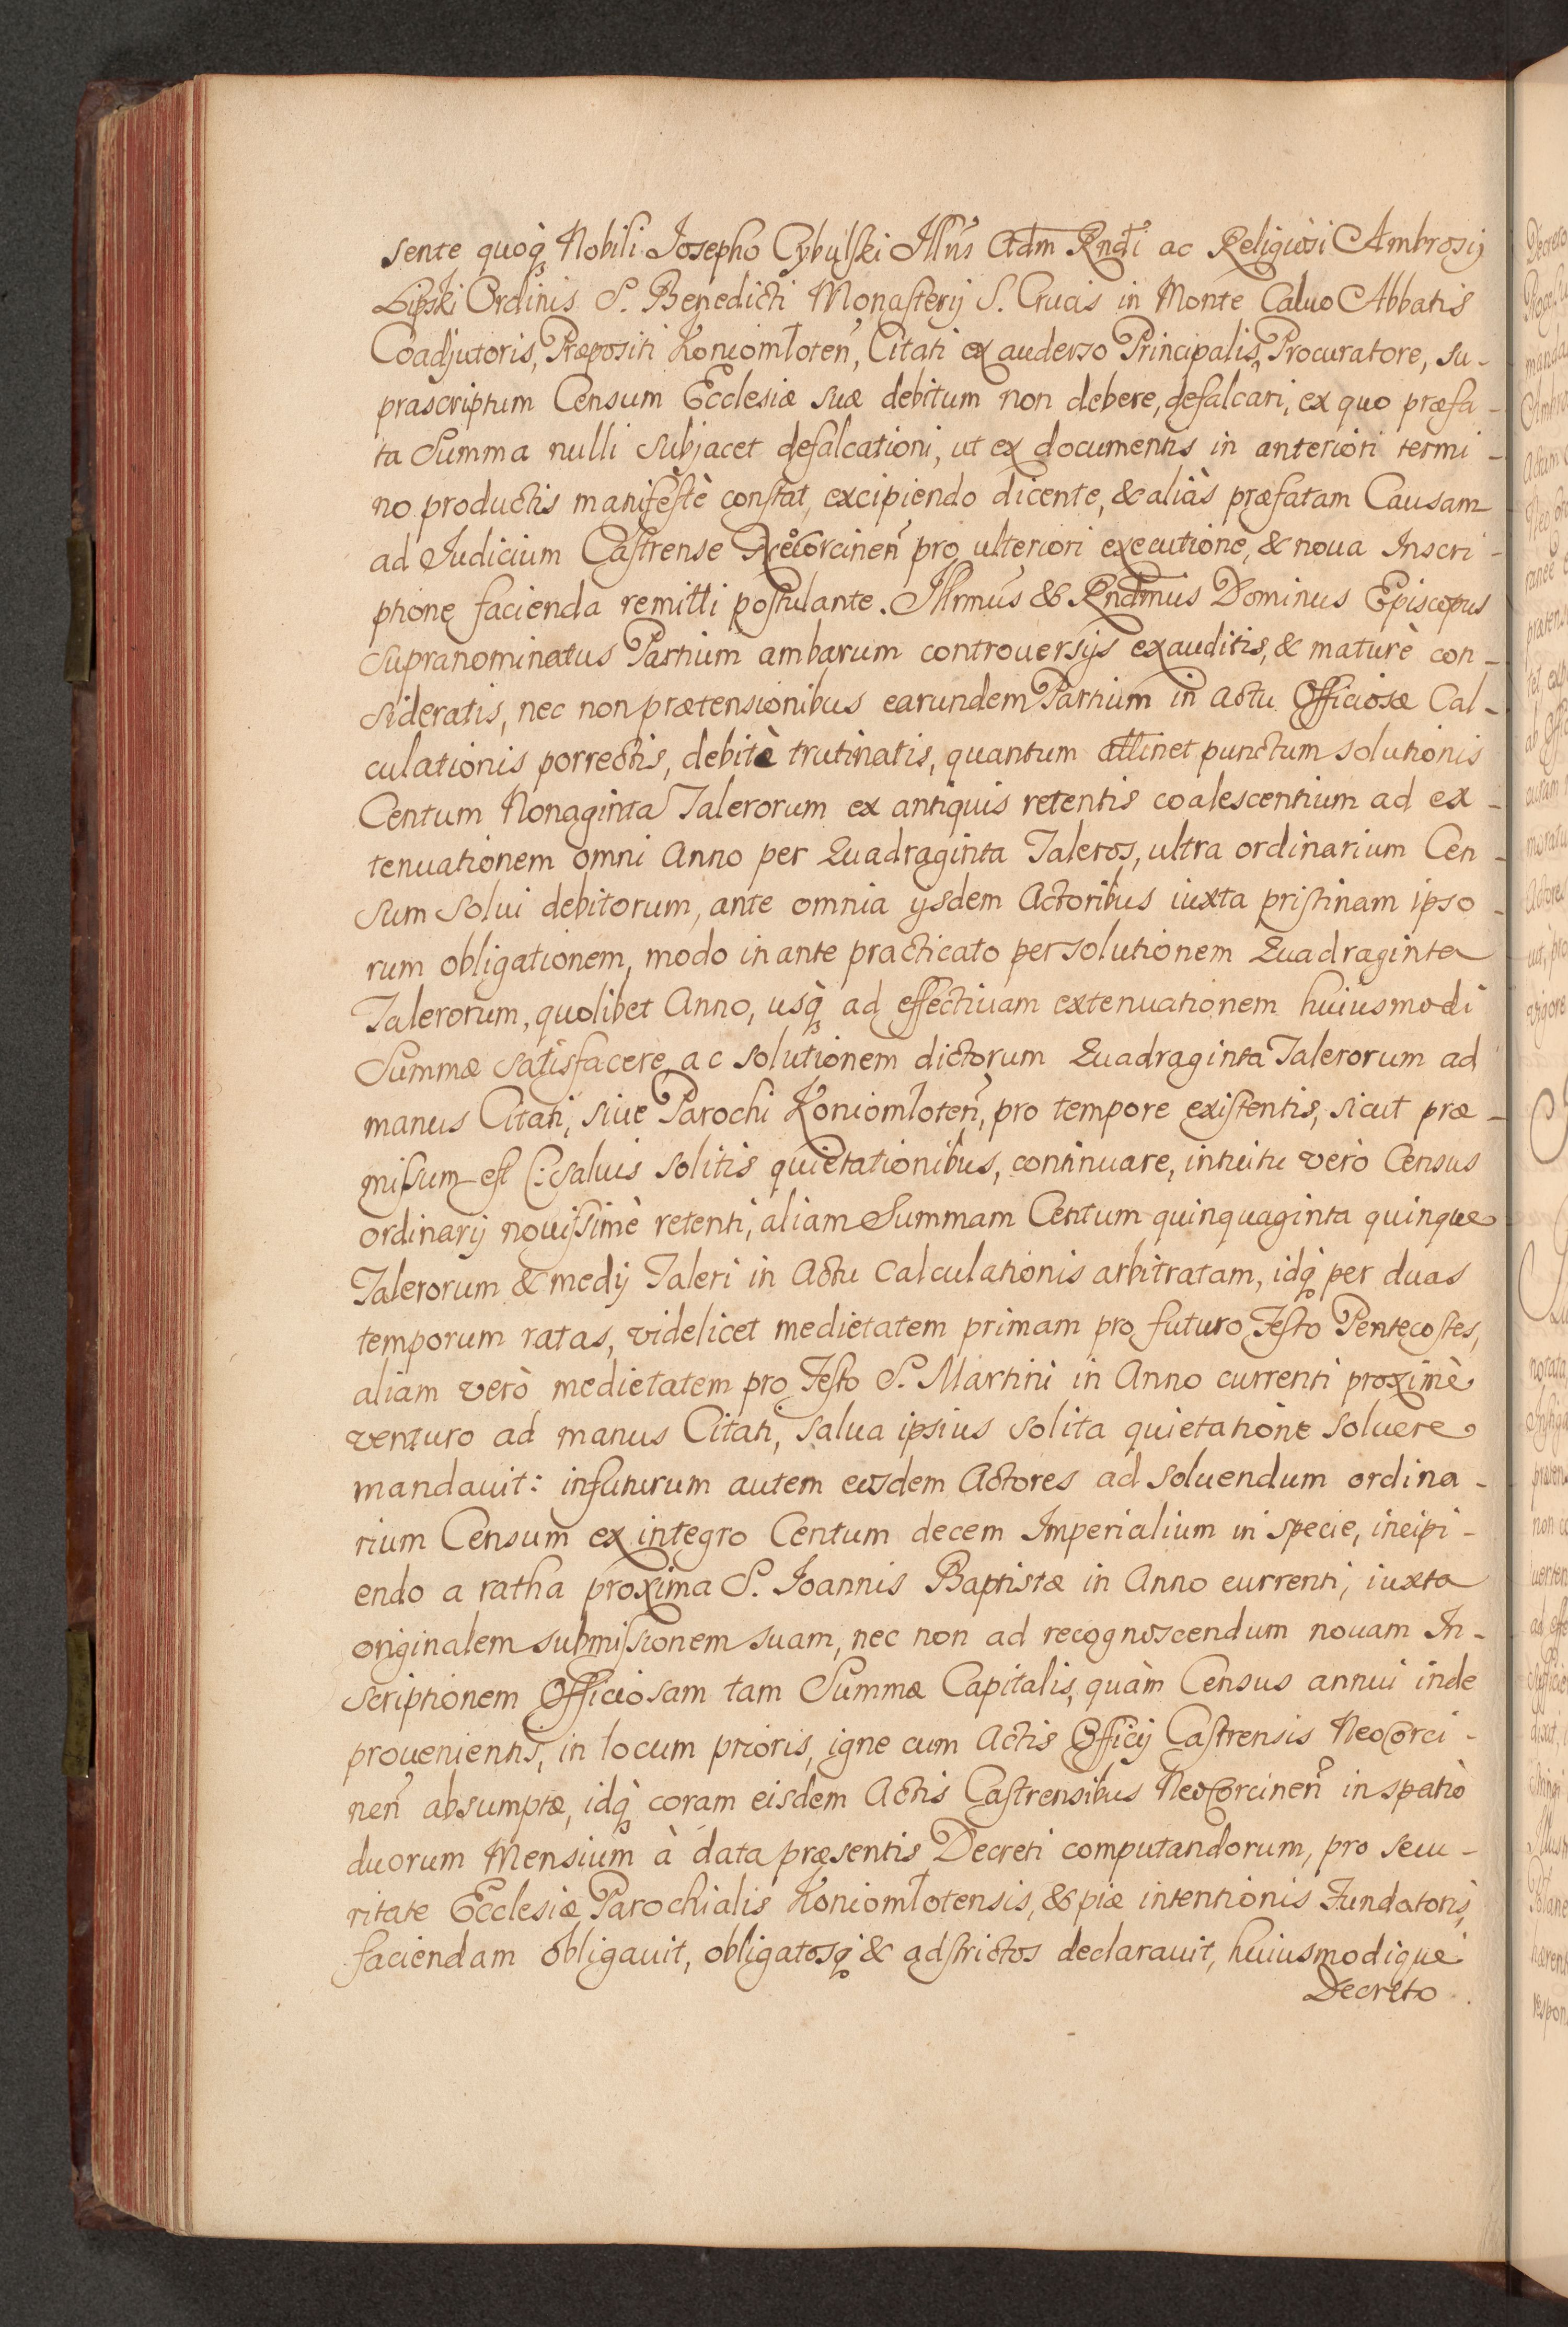 sente quoq̃ Nobili Josepho Cybulski Illũs Adm Rndi ac Religiosi Ambrosij
Lipski Ordinis S. Benedicti Monasterij S. Crucis in Monte Caluo Abbatis
Coadjutoris, Præpositi Koniomłoteñ, Citati ex auderso Principalis, Procuratore, su-
prascriptum Censum Ecclesiæ suæ debitum non debere, defalcari, ex quo præfa-
ta Summa nulli subjacet defalcationi, ut ex documentis in anteriori termi-
no productis manifestè constat, excipiendo dicente, & aliàs præfatam Causam
ad Judicium Castrense NeoCorcineñ pro ulteriori executione, & noua Inscri-
ptione facienda remitti postulante. Illrmus & Rndmus Dominus Episcopus
Supranominatus Partium ambarum controuersijs exauditis, & maturè con-
sideratis, nec non prætensionibus earundem Partium in actu Officiosæ Cal-
culationis porrectis, debitè trutinatis, quantum attinet punctum solutionis
Centum Nonaginta Talerorum ex antiquis retentis coalescentium ad ex-
tenuationem omni Anno per Quadraginta Taleros, ultra ordinarium Cen-
sum solui debitorum, ante omnia ijsdem Actoribus iuxta pristinam ipso-
rum obligationem, modo in ante practicato per solutionem Quadraginta
Talerorum, quolibet Anno, usq̃ ad effectiuam extenuationem huiusmodi
Summæ satisfacere, ac solutionem dictorum Quadraginta Talerorum ad
manus Citati, siue Parochi Koniomłoteñ, pro tempore existentis, sicut præ-
missum est (: saluis solitis quietationibus, continuare, intuitu verò Census
ordinarij nouissimè retenti, aliam Summam Centum quinquaginta quinque
Talerorum & medij Taleri in Actu Calculationis arbitratam, idq̃ per duas
temporum ratas, videlicet medietatem primam pro futuro Festo Pentecostes,
aliam verò medietatem pro Festo S. Martini in Anno currenti proximè
venturo ad manus Citati, salua ipsius solita quietatione soluere
mandauit: in futurum autem eosdem Actores ad soluendum ordina-
rium Censum ex integro Centum decem Imperialium in specie, incipi-
endo a ratha proxima S. Joannis Baptistæ in Anno currenti, iuxta
originalem submissionem suam, nec non ad recognoscendum nouam In-
scriptionem Officiosam tam Summæ Capitalis, quàm Census annui inde
prouenientis, in locum prioris, igne cum Actis Officij Castrensis NeoCorci-
neñ absumptæ, idq̃ coram eisdem Actis Castrensibus NeoCorcineñ in spatio
duorum Mensium à data præsentis Decreti computandorum, pro secu-
ritate Ecclesiæ Parochialis Koniomłotensis, & piæ intentionis Fundatoris,
faciendam obligauit, obligatosq̃ & adstrictos declarauit, huiusmodique
Decreto